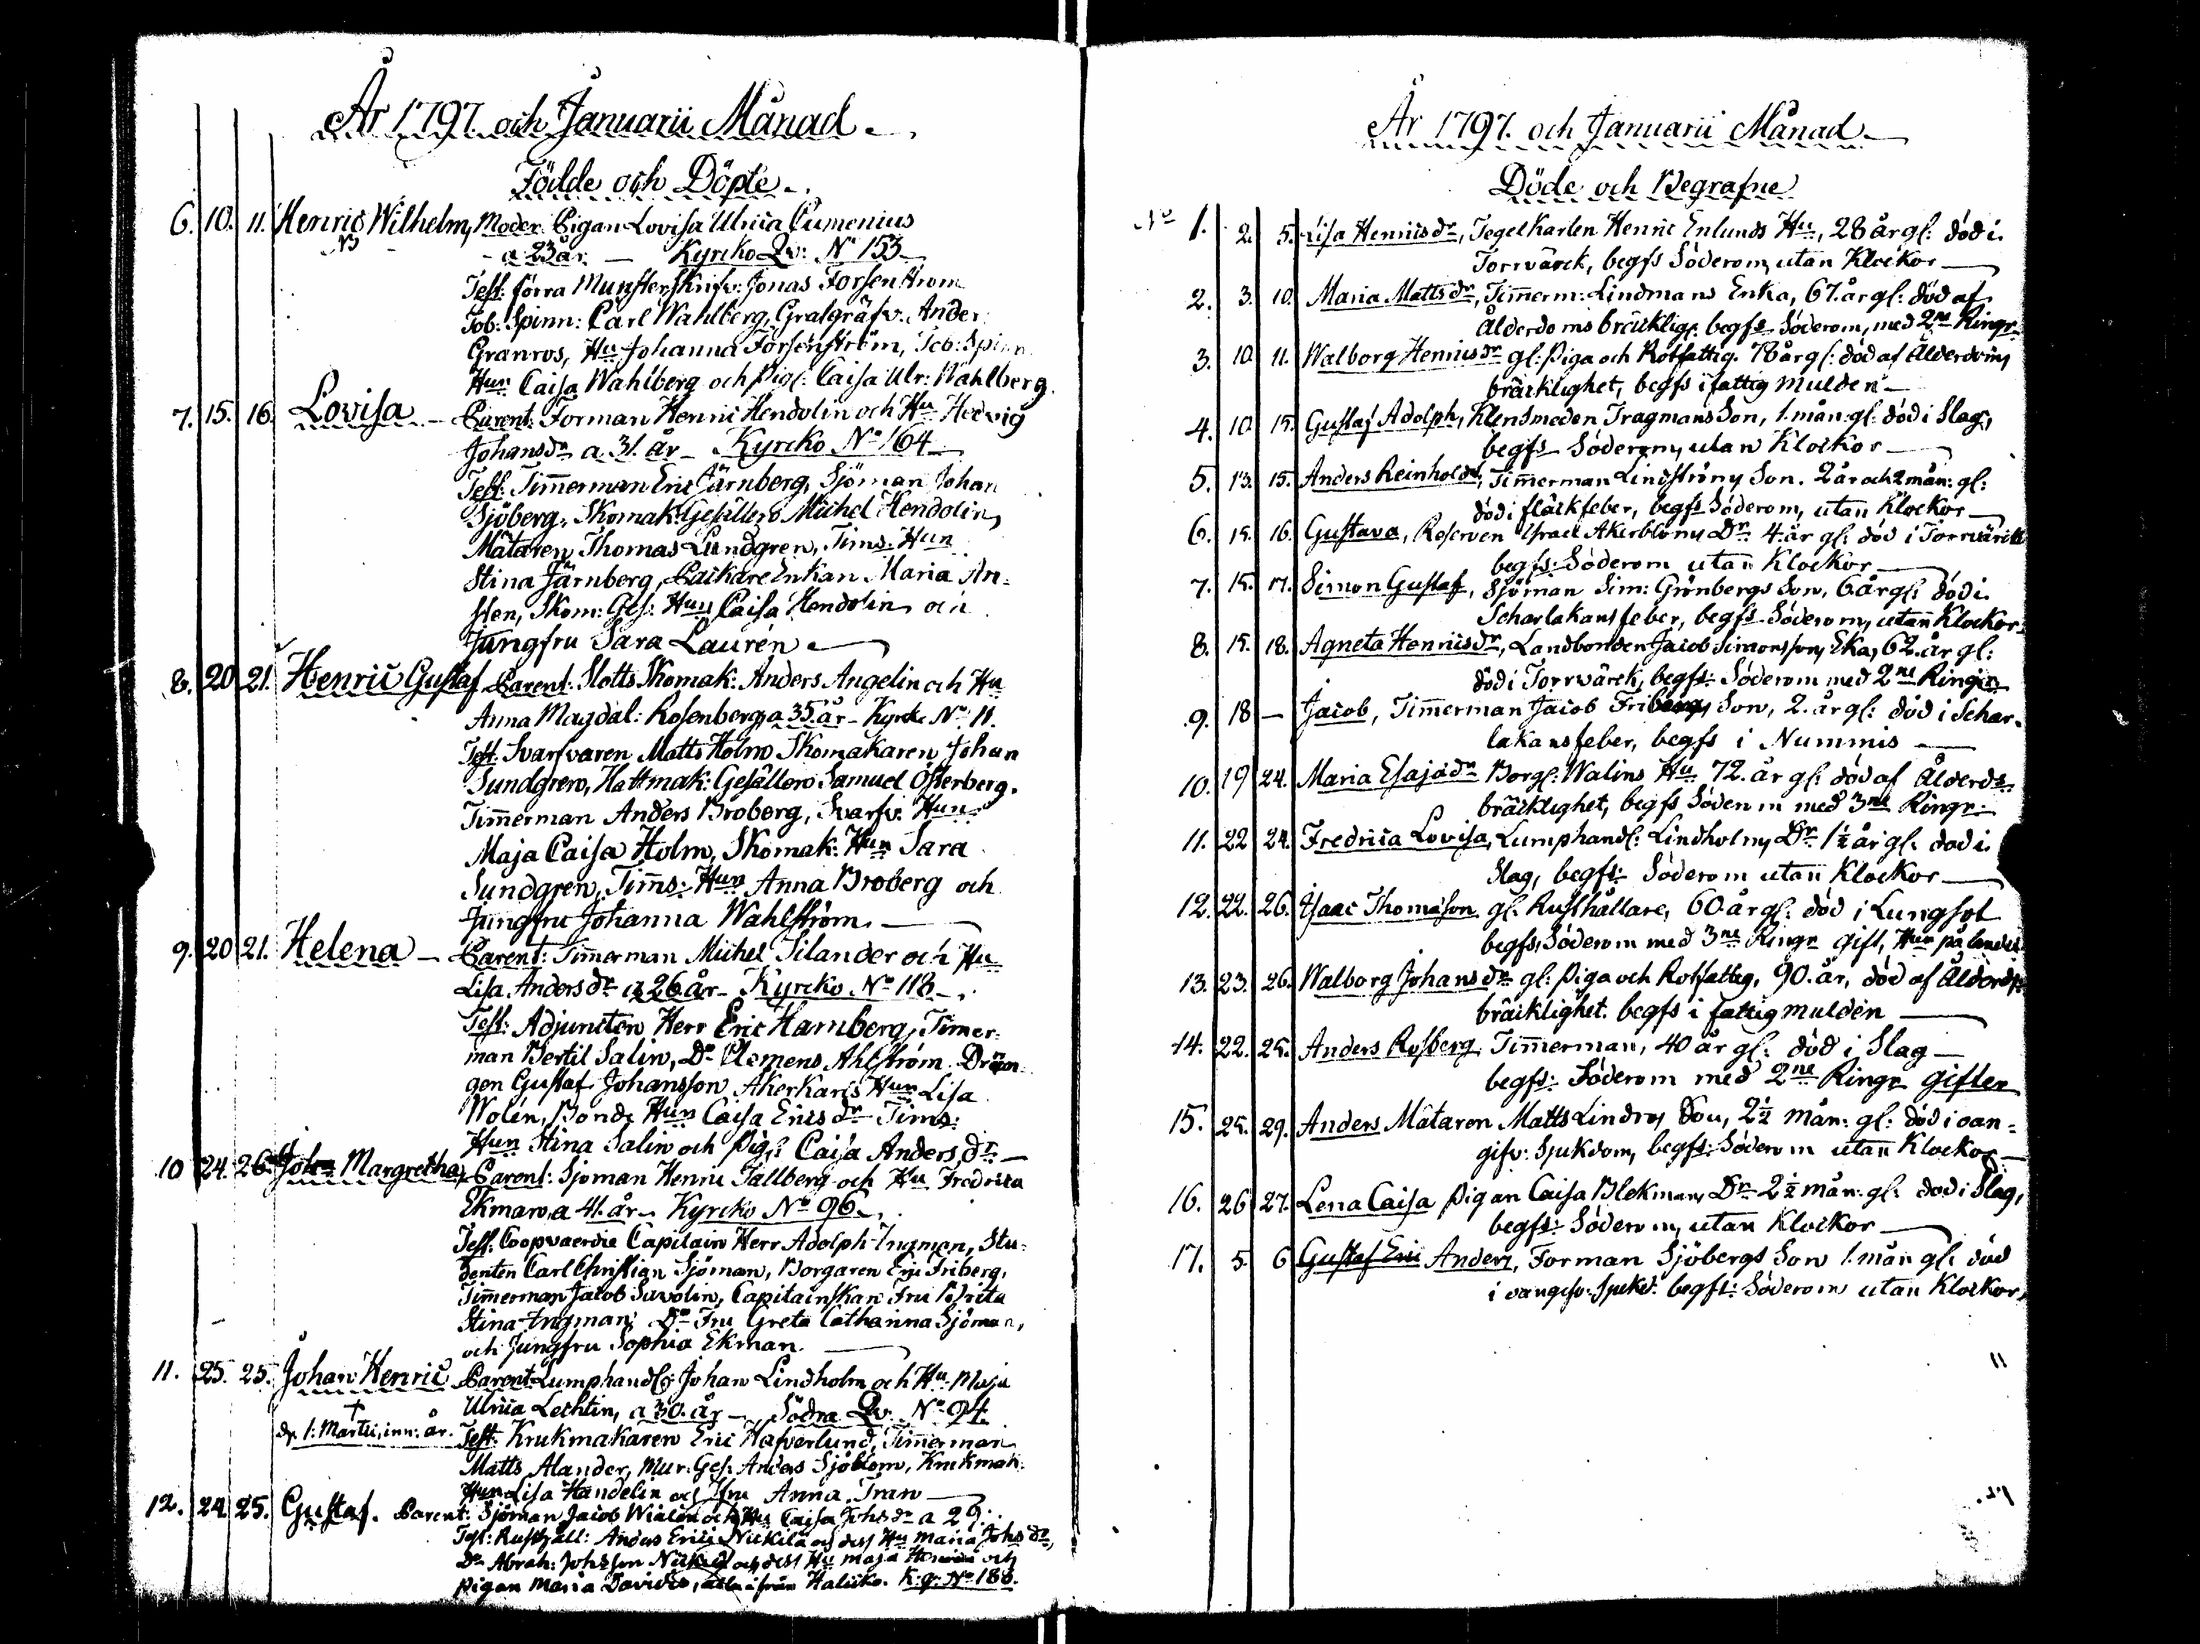 År 1797. och Januarii Månad.
Födde och Döpte.
6. 10. 11. Henric Wilhelm, Moder: Pigan Lovisa Ulrica Cumenius
a 23 år Kyrcko Qv: No 153
Test: förra Munsterskrifv: Jonas Forsenström
Tob: Spinn: Carl Wahlberg, Gralgräfv: Ander
Granros, Hu Johanna Forsenström, Tob: Spinn
Hun Caisa Wahlberg och Pig: Caisa Ulr: Wahlberg.
7. 15. 16. Lovisa Parent: Forman Henric Hendolin och Hu Hedvig
Johansdr a 31. år Kyrcko No 164
Test: Timmerman Eric Järnberg, Sjöman Johan
Sjöberg, Skomak: Gesällen Michel Hendolin,
Mätaren Thomas Lundgren, Tims: Hun
Stina Järnberg, Packare Enkan Maria An-
sten, Skom: Ges: Hun Caisa Hendolin och
Jungfru Sara Laurén
8. 20 21. Henric Gustaf Parent: Slotts Skomak: Anders Angelin och Hu
Anna Magdal: Rosenberg, a 35 år Kyrck: No 11.
Test: Svarfvaren Matts Holm Skomakaren Johan
Sundgren, Hattmak: Gesällen Samuel Österberg.
Timmerman Anders Broberg, Svarfv: Hun
Maja Caisa Holm, Skomak: Hun Sara
Sundgren, Tims: Hun Anna Broberg och
Jungfru Johanna Wahlström.
9. 20 21. Helena Parent: Timmerman Michel Silander och Hu
Lisa Andersdr a 26 år Kyrcko No 118
Test: Adjuncten Herr Eric Hamberg, Timer-
man Bertil Salin, Do Clemens Ahlström. Drän-
gen Gustaf Johansson Åkerkarls Hun Lisa
Wolin, Bonds Hun Caisa Ericsdr Tims:
Hun Stina Salin och Pig: Caisa Andersdr
10 24. 26. Margretha, Parent: Sjöman Henric Tallberg och Hu Fredrica
Ekman, a 41. år Kyrcko No 96
Test: Coopvaerdie Capitain Herr Adolph Ingman, Stu-
denten Carl Christian Sjöman, Borgaren Eric Friberg,
Timmerman Jacob Savolin, Capitainskan Fru Brita
Stina Ingman, Do Fru Greta Catharina Sjöman,
och Jungfru Sophia Ekman
11. 25. 25. Johan Henric Parent: Lumphandl: Johan Lindholm och Hu: Maja
Ulrica Lechtin, a 30. år Södra Qv: No 94.
d. 1. Martii, inn: år. Test: Krukmakaren Eric Hafverlund, Timmerman
Matts Alander, Mur: Ges: Anders Sjöblom, Krukmak:
Hun Lisa Handelin och Jfru Anna Tran
12. 24 25. Gustaf. Parent: Sjöman Jacob Wialén och Hu Caisa Johsdr a 29.
Test: Rusthåll: Anders Erics Nickilä och dess Hu Maria Johsdr,
Do Abrah: Johsson och dess Hu Maja och
Pigan Maria Davids, alla ifrån Haliko. K: q: No 188.
År 1797. och Januarii Månad
Döde och Begrafne
No 1. 2. 5. Lisa Henricsdr, Tegelkarlen Henric Enlunds Hu, 28 år gl: död i
Torrvärck, begfs Söderom, utan Klockor
2. 3. 10. Maria Mattsdr, Timmerm: Lindmans Enka, 67. år gl: död af
Ålderdoms bräcklig: begfs Söderom, med 2ne Ringr
3. 10. 11. Walborg Henricsdr gl: Piga och Rotfattig. 78 år gl: död af Ålderdoms
bräcklighet, begfs i fattig mulden
4. 10. 15. Gustaf Adolph, Klensmeden Tragmans Son, 1. mån: gl: död i Slag,
begfs Söderom, utan Klockor
5. 13. 15. Anders Reinhold, Timmerman Lindströms Son. 2 år och 2 mån: gl:
död i fläckfeber, begfs Söderom, utan Klockor
6. 15. 16. Gustava, Israel Åkerbloms Dr 4. år gl: död i Torrvärck
begfs: Söderom utan Klockor
7. 15. 17. Simon Gustaf, Sjöman Sim: Grönbergs Son, 6 år gl: död i
Scharlakansfeber, begfs Söderom, utan Klockor
8. 15. 18. Agneta Henricsdr, Landbonden Jacob Simonssons Eka, 62. år gl:
död i Torrvärck, begfs: Söderom med 2ne Ringr
9. 18 — Jacob, Timmerman Jacob Fribergs Son, 2. år gl: död i Schar-
lakansfeber, begfs i Nummis
10. 19 24. Maria Esajædr Borg: Walins Hu 72. år gl: död af Ålderds
bräcklighet, begfs Söderom med 3ne Ringr
11. 22 24. Fredrica Lovisa, Lumphandl: Lindholms Dr 1½ år gl: död i
Slag, begfs: Söderom utan Klockor
12. 22. 26. Isaac Thomasson gl: Rusthållare, 60 år gl: död i Lungsot
begfs Söderom med 3ne Ringr gift, Hun på landet
13. 23. 26. Walborg Johansdr gl: Piga och Rotfattig, 90. år, död af Ålderds
bräcklighet. begfs i fattig mulden
14. 22. 25. Anders Rosberg, Timmerman, 40 år gl: död i Slag
begfs: Söderom med 2ne Ringr gifter
15. 25. 29. Anders Mätaren Matts Lindros Son, 2½ mån: gl: död i oan-
gifv: Sjukdom, begfs: Söderom utan Klockor
16. 26 27. Lena Caisa Pigan Caisa Blekmans Dr 2½ mån: gl: död i Slag,
begfs: Söderom, utan Klockor
17. 5. 6 Gustaf Eric Anders, Forman Sjöbergs Son 1. mån gl: död
i oangifv: Sjukd: begfs: Söderom utan Klockor